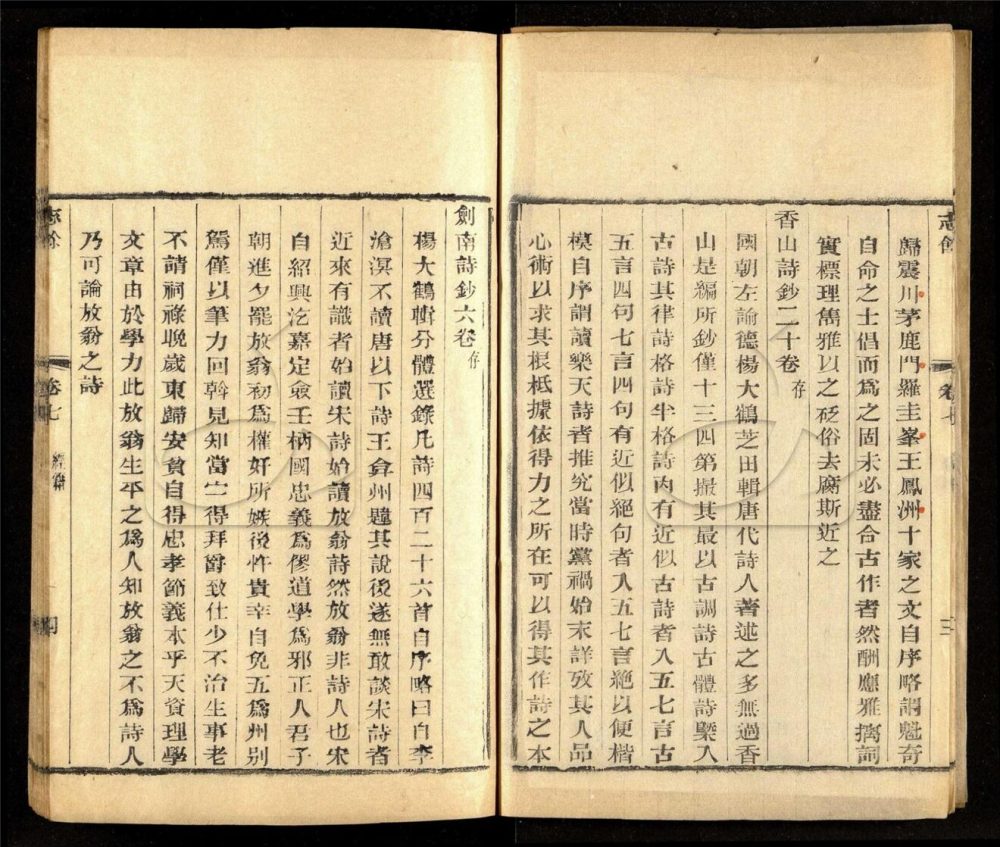 志餘
卷七
三
歸震川茅鹿門羅圭峯王鳳洲十家之文自序略謂魁奇
自命之士倡而爲之固未必盡合古作者然酬應雅摛詞
實標理雋雅以之砭俗去腐斯近之
香山詩鈔二十卷存
國朝左諭德楊大鶴芝田輯唐代詩人著述之多無過香
山是編所鈔僅十三四第撮其最以古調詩古體詩槩入
古詩其律詩格詩半格詩內有近似古詩者入五七言古
五言四句七言四句有近似絕句者入五七言絕以便楷
模自序謂讀樂天詩者推究當時黨禍始末詳攷其人品
心術以求其根柢據依得力之所在可以得其作詩之本
劍南詩鈔六卷存
楊大鶴輯分體選錄凡詩四百二十六首自序略曰自李
滄溟不讀唐以下詩王弇州韙其說後遂無敢談宋詩者
近來有識者始讀宋詩始讀放翁詩然放翁非詩人也宋
自紹興迄嘉定僉壬柄國忠義爲僇道學爲邪正人君子
朝進夕罷放翁初爲權奸所嫉後忤貴幸自免五爲州别
駕僅以筆力回斡見知當宁得拜爵致仕少不治生事老
不請祠祿晚歲東歸安貧自得忠孝節義本乎天資理學
文章由於學力此放翁生平之爲人知放翁之不爲詩人
乃可論放翁之詩
志餘
卷七
經籍
四